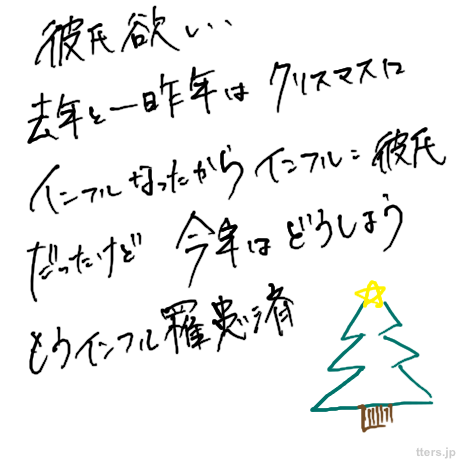 彼氏欲しい..
去年と一昨年は クリスマスに
インフルなったから インフル=彼氏
だったけど 今年はどうしよう
もうインフル罹患済
tters.jp